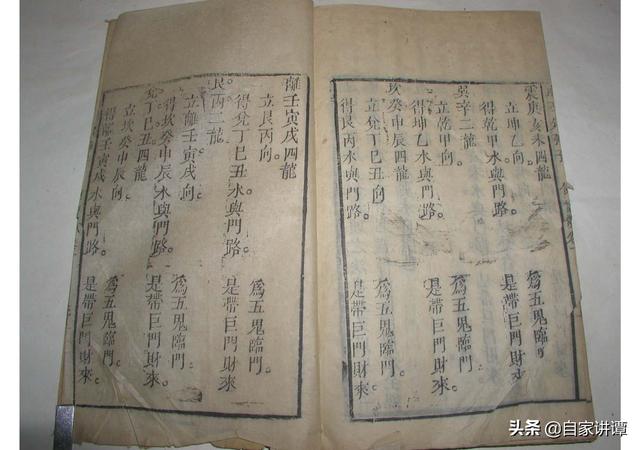 震庚亥未四龍
立坤乙向。
為五鬼臨門
得乾甲水與門路。
是帶巨門財來
巽辛二龍
立乾甲向。
為五鬼臨門。
得坤乙水與門路。
是帶巨門財來
坎癸申辰四龍
立兌丁巳丑向
為五鬼臨門。
得艮丙水與門路。
是帶巨門財來。
離壬寅戌四龍
立艮丙向。
為五鬼臨門。
得兌丁巳丑水與門路。
是帶巨門財來。
艮丙二龍
立離壬寅戌向。
為五鬼臨門。
得坎癸申辰水與門路。
是帶巨門財來。
兌丁巳丑四龍
立坎癸申辰向。
為五鬼臨門。
得離壬寅戌水與門路。
是帶巨門財來。
头条 @自家讲谭